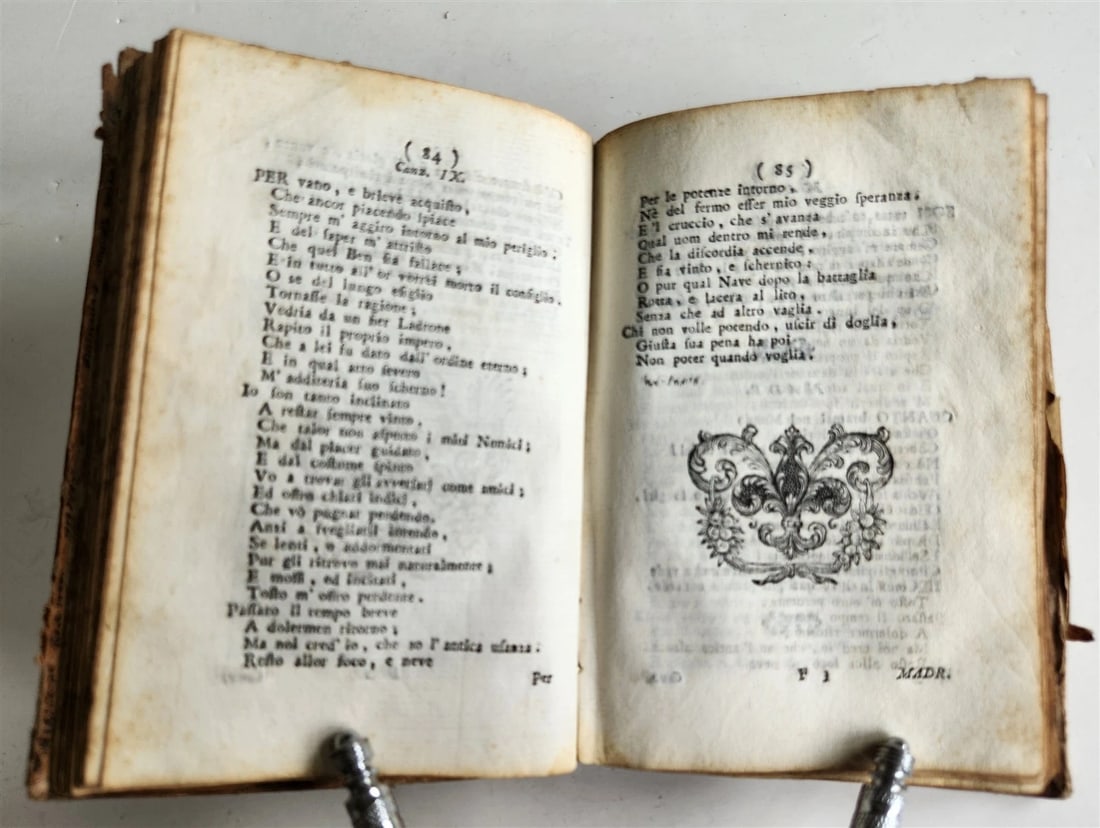 ( 84 )
Canz. IX.
PER vano, e brieve acquisto,
Che ancor piacendo spiace
Sempre m' aggiro intorno al mio periglio;
E del saper m' attristo
Che quel Ben sia fallace;
E in tutto all' or vorrei morto il consiglio.
O se del lungo esiglio
Tornasse la ragione;
Vedria da un fier Ladrone
Rapito il proprio impero,
Che a lei fu dato dall' ordine eterno;
E in qual atto severo
M' additeria suo scherno!
Io son tanto inclinato
A restar sempre vinto,
Che talor non aspetto i miei Nemici;
Ma dal piacer guidato,
E dal costume spinto
Vo a trovar gli avversarj come amici;
Ed offro chiari indicj,
Che vò pugnar perdendo.
Anzi a svegliarli intendo,
Se lenti, o addormentati
Pur gli ritrovo mai naturalmente;
E mossi, ed incitati,
Tosto m' offro perdente.
Passato il tempo breve
A dolermen ritorno;
Ma nol cred' io, che so l' antica usanza:
Resto allor foco, e neve
Per
( 85 )
Per le potenze intorno,
Nè del fermo esser mio veggio speranza;
E 'l cruccio, che s' avanza
Qual uom dentro mi rende,
Che la discordia accende,
E sia vinto, e schernito:
O pur qual Nave dopo la battaglia
Rotta, e lacera al lito,
Senza che ad altro vaglia.
Chi non volle potendo, uscir di doglia,
Giusta sua pena ha poi
Non poter quando voglia.
F 3
MADR.